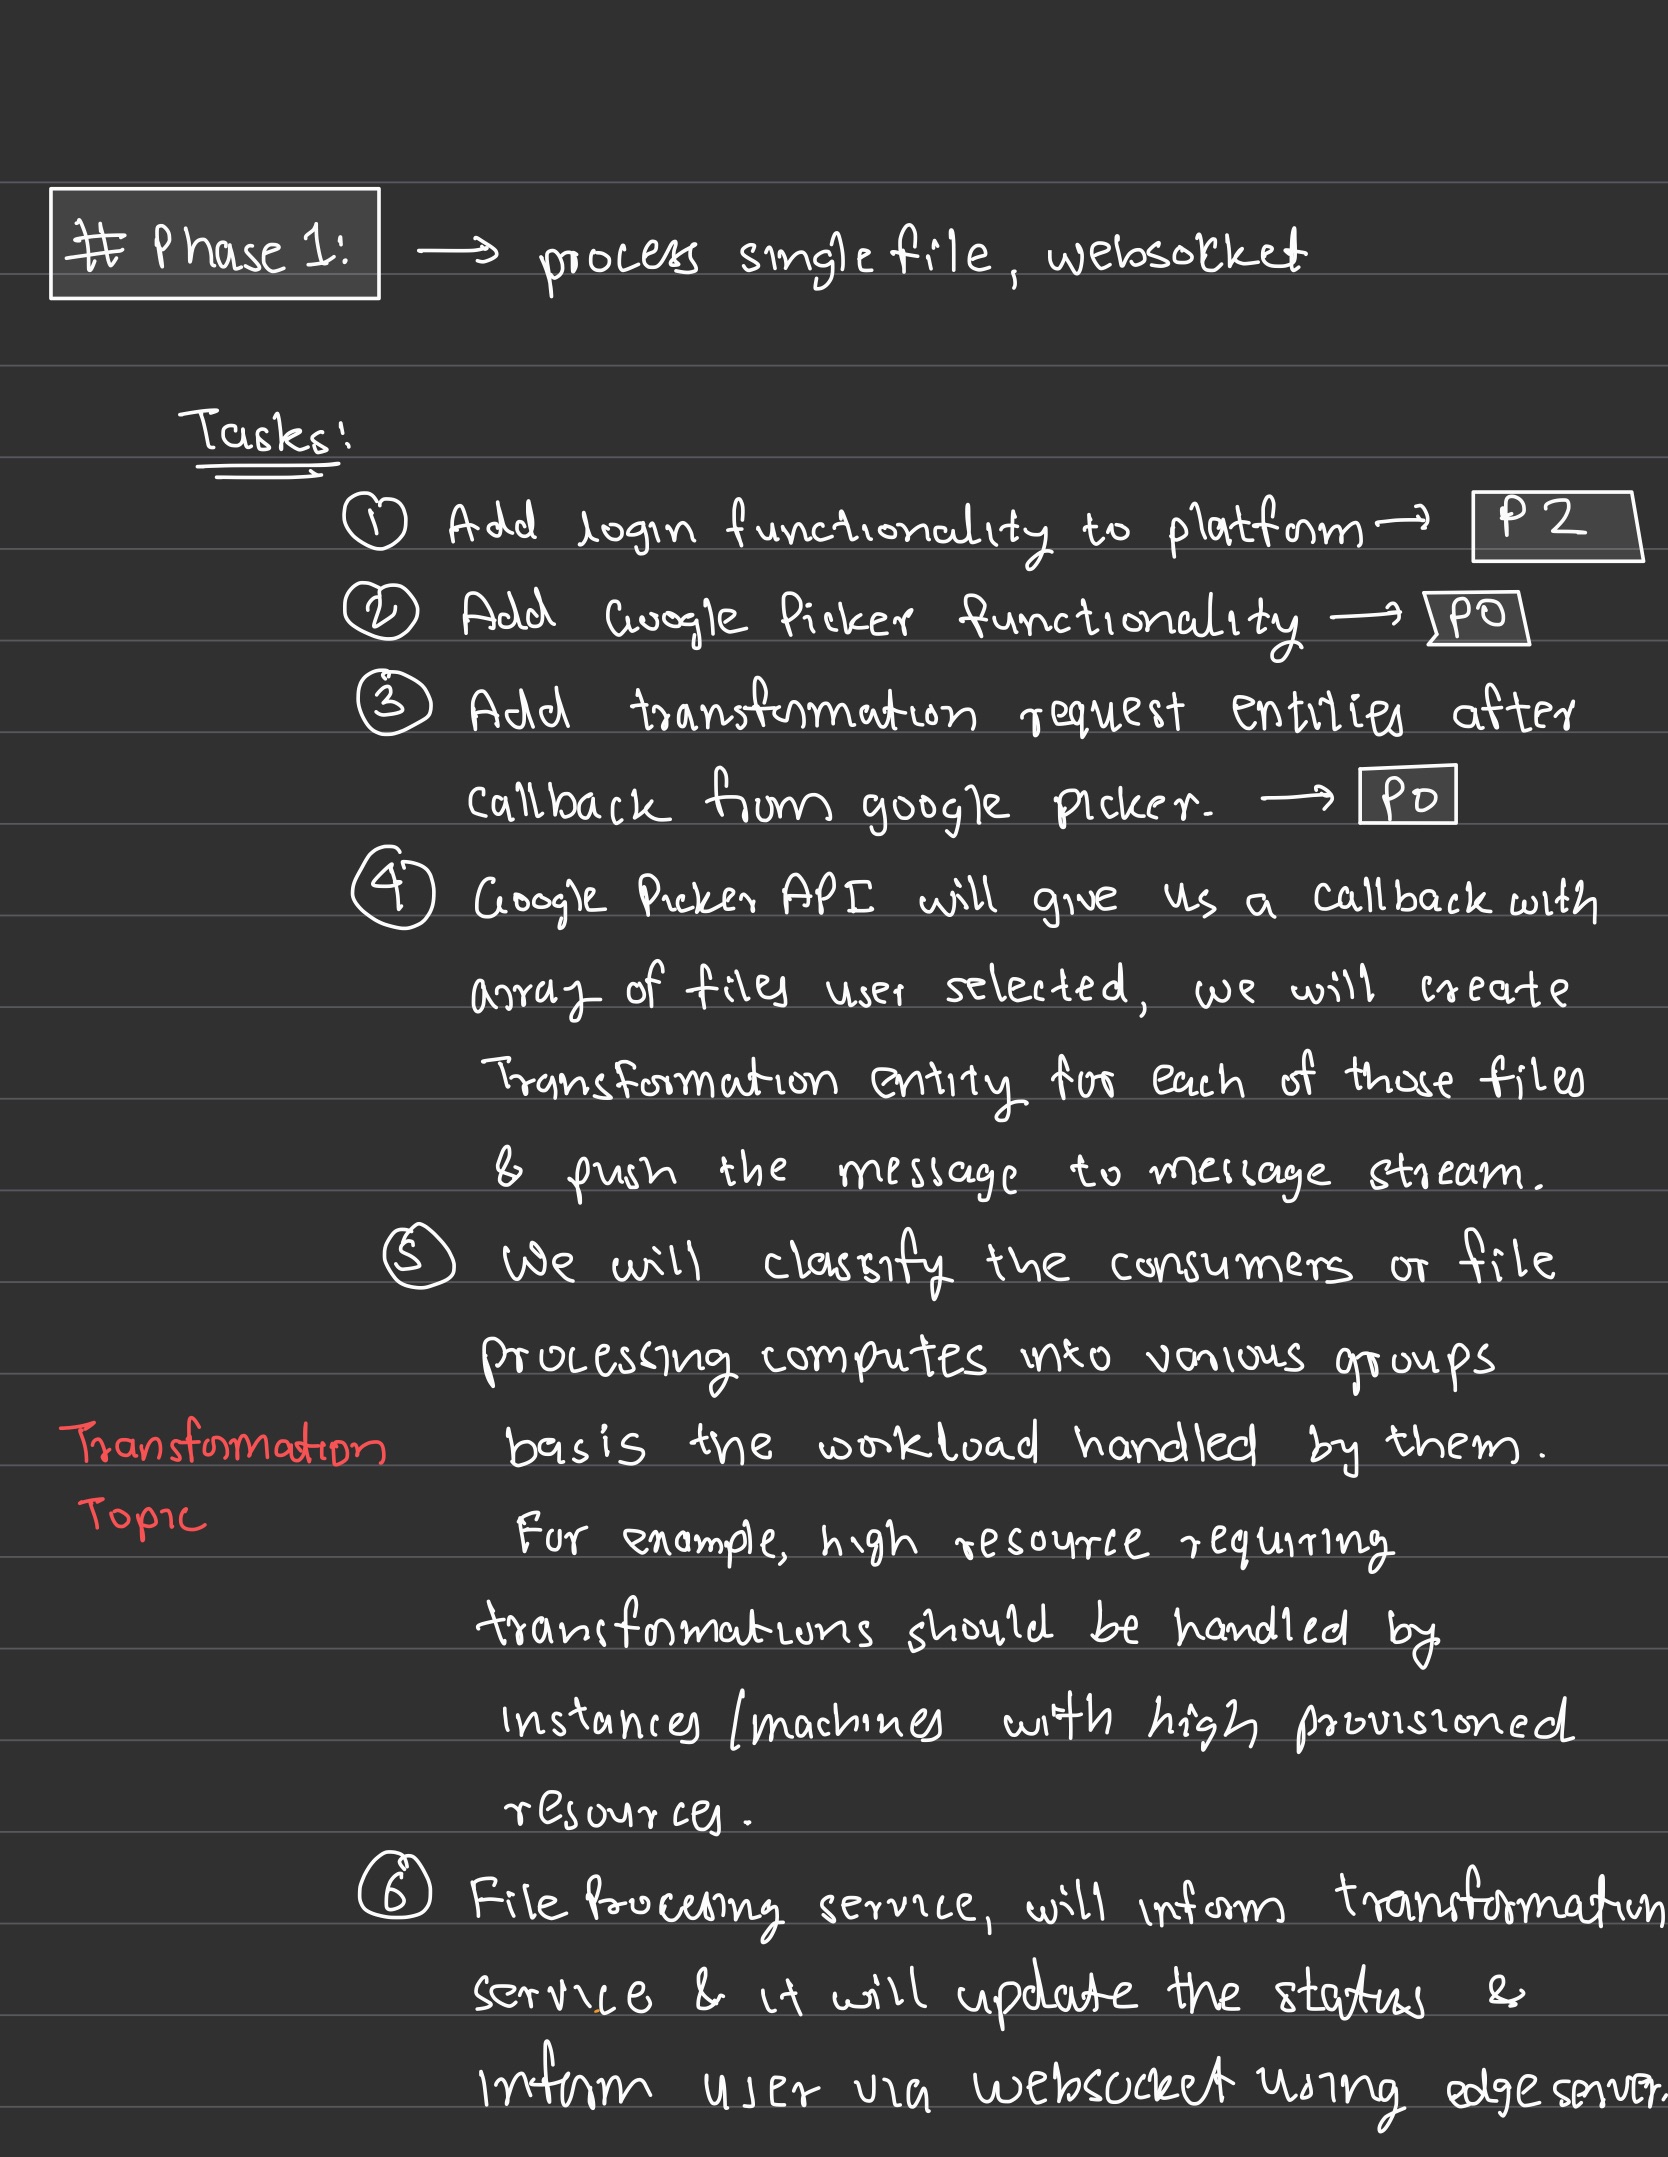 # Phase 1: → process single file, websocket
Tasks:
① Add login functionality to platform → P2
② Add Google Picker functionality → P0
③ Add transformation request entities after
callback from google picker. → P0
④ Google Picker API will give us a callback with
array of files user selected, we will create
Transformation entity for each of those files
& push the message to message stream.
⑤ We will classify the consumers or file
processing computes into various groups
Transformation basis the workload handled by them.
Topic
For example, high resource requiring
transformations should be handled by
instances/machines with high provisioned
resources.
⑥ File Processing service, will inform transformation
service & it will update the status &
inform user via websocket using edge server.